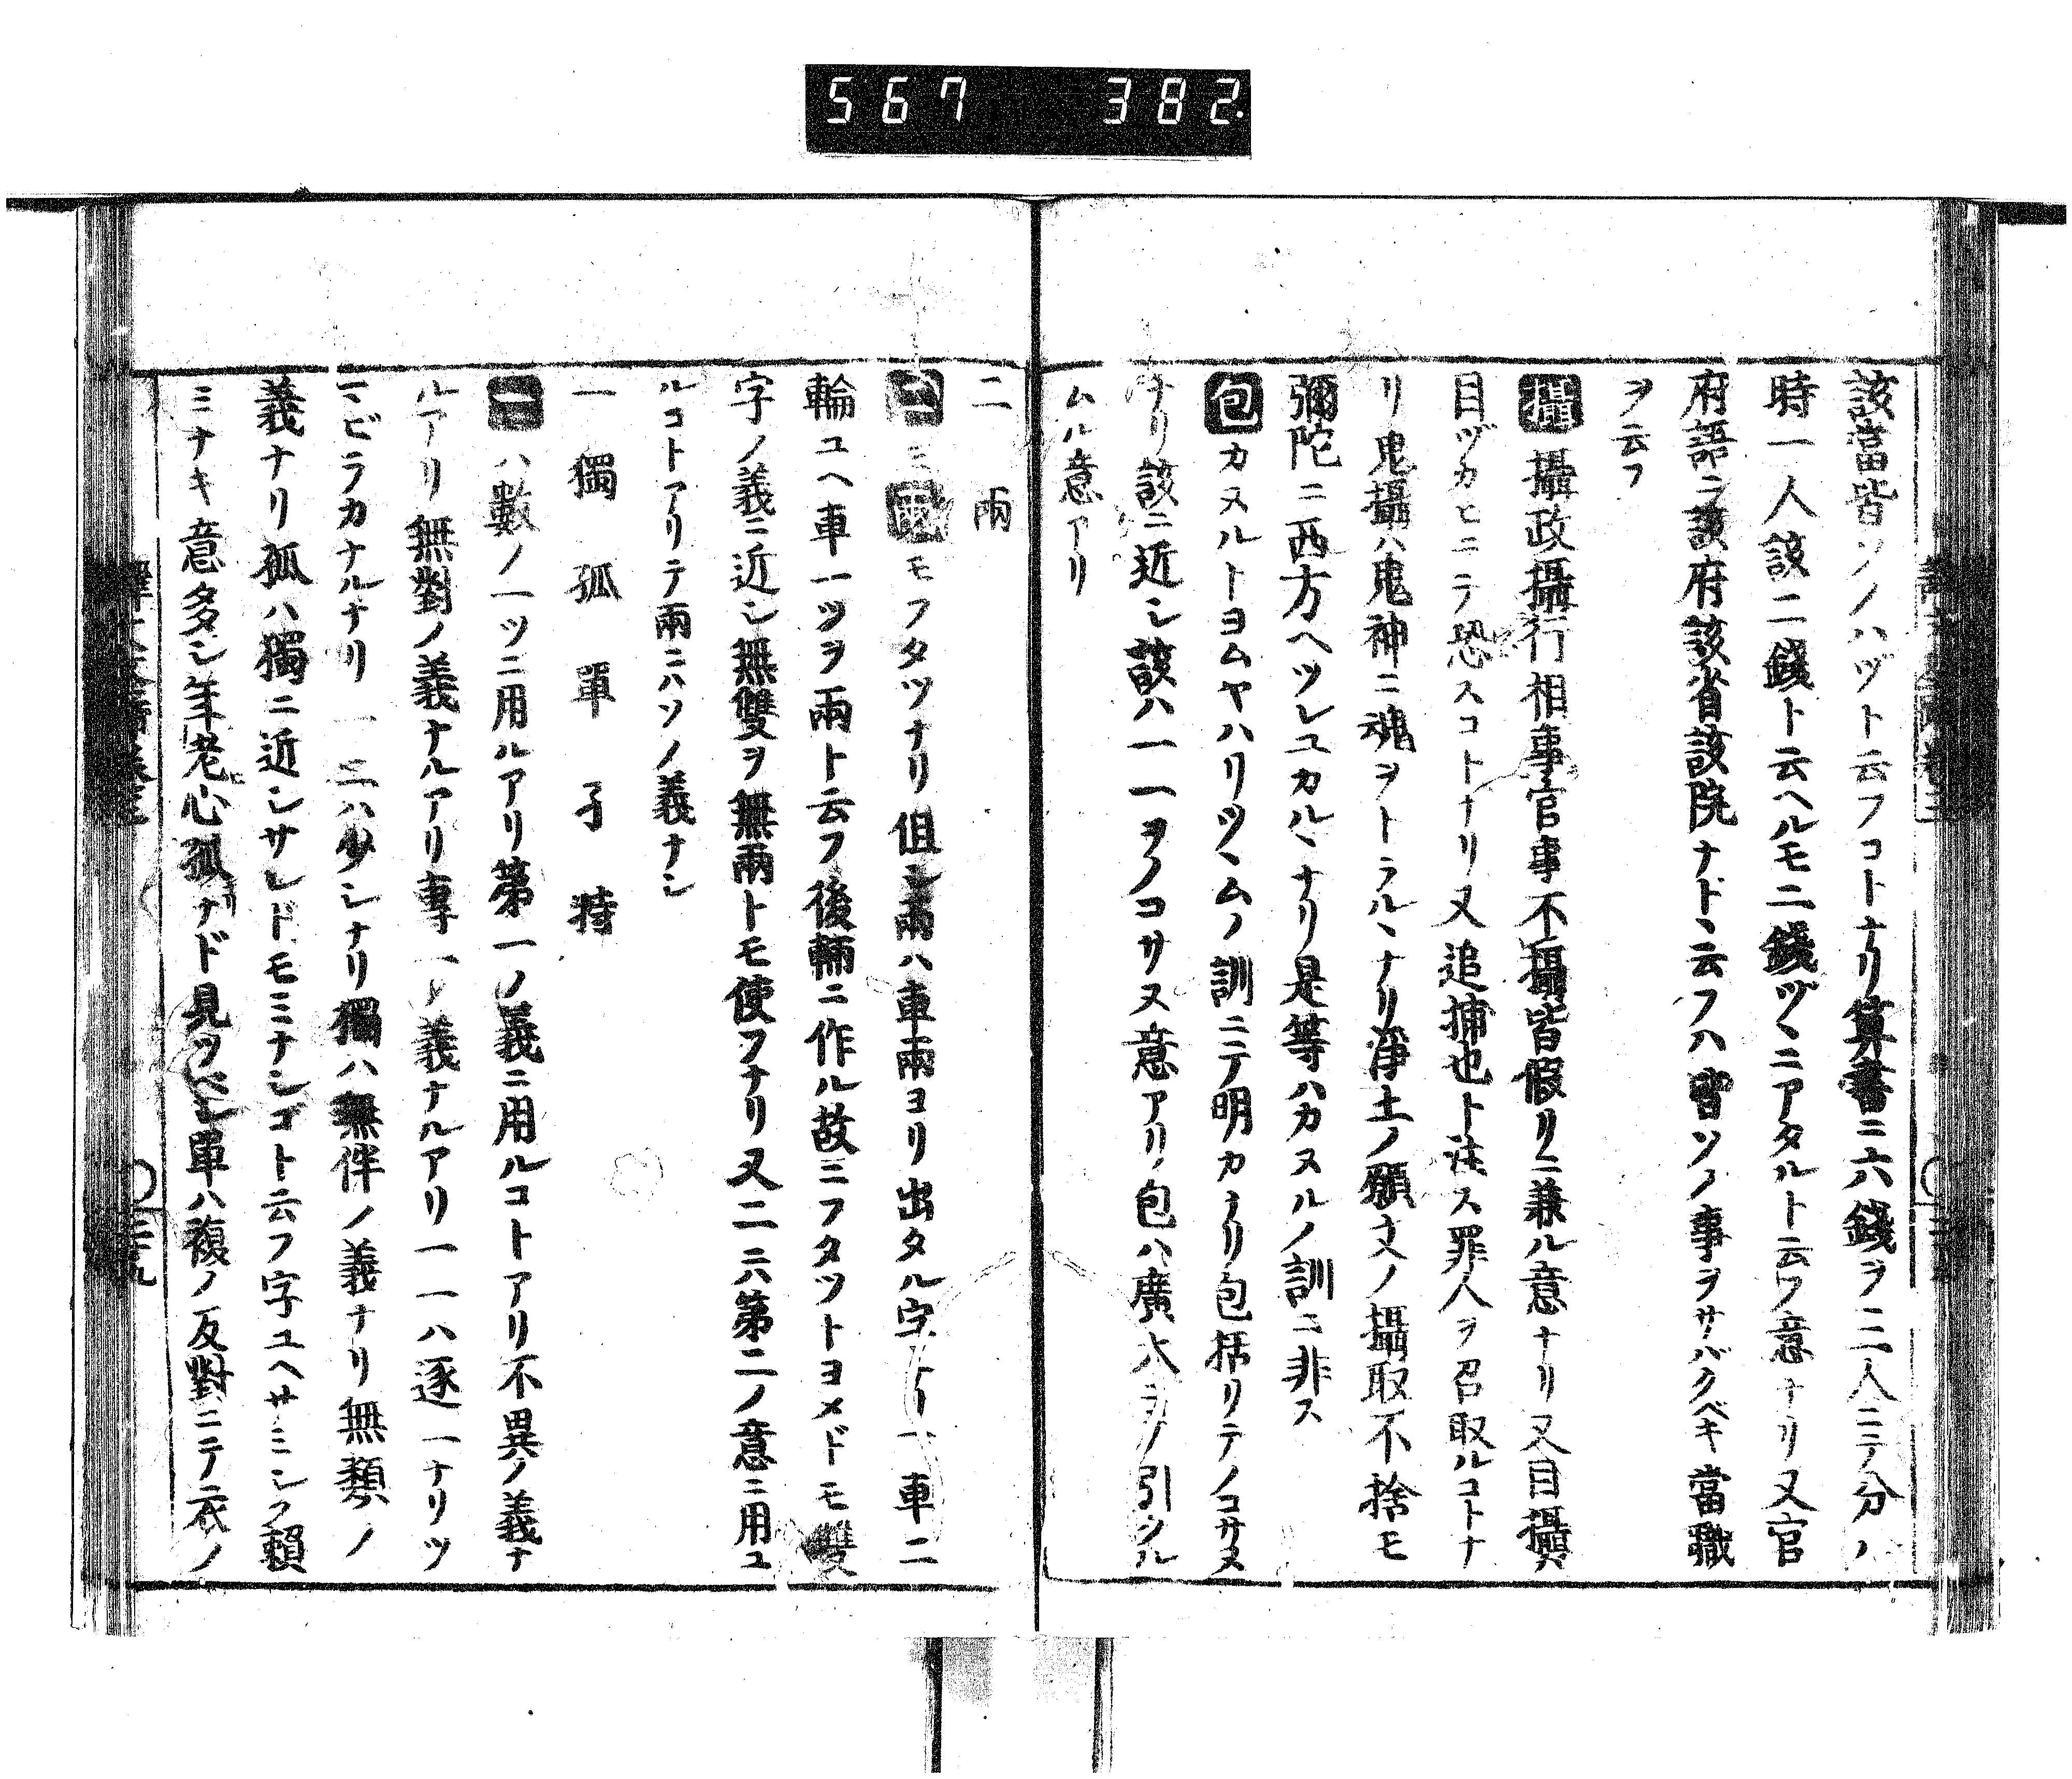 567 382.
該當皆ソノハヅト云フコトナリ算書ニ六錢ヲ三人ニテ分ノ
時一人該二錢ト云ヘルモ二錢ヅヽニアタルト云フ意ナリ又官
府語ニ該府該省該院ナドヽ云フハ皆ソノ事ヲサバクベキ當職
ヲ云フ
攝 攝政攝行相事官事不攝皆假リニ兼ル意ナリ又目攝
目ヅカヒニテ恐スコトナリ又追捕也ト注ス罪人ヲ召取ルコトナ
リ鬼攝ハ鬼神ニ魂ヲトラルヽナリ淨土ノ願文ノ攝取不捨モ
彌陀ニ西方ヘツレユカルヽナリ是等ハカヌルノ訓ニ非ス
包 カヌルトヨムヤハリツヽムノ訓ニテ明カナリ包括リテノコサヌ
ナリ該ニ近シ該ハ一一ヲノコサヌ意アリ包ハ廣大ヲ引シル
ムル意アリ
二 兩
二ニ兩モフタツナリ但シ兩ハ車兩ヨリ出タル字ナリ一車二
輪ユヘ車一ツヲ兩ト云フ後輛ニ作ル故ニフタツトヨメドモ雙
字ノ義ニ近シ無雙ヲ無兩トモ使フナリ又二ニハ第二ノ意ニ用ユ
ルコトアリテ兩ニハソノ義ナシ
一 獨 孤 單 孑 特
一ハ數ノ一ツニ用ルアリ第一ノ義ニ用ルコトアリ不異ノ義ナ
ルアリ無對ノ義ナルアリ專一ノ義ナルアリ一一ハ逐一ナリツ
マビラカナルナリ一二ハ少シナリ獨ハ無伴ノ義ナリ無類ノ
義ナリ孤ハ獨ニ近シサレドモミナシゴト云フ字ユヘサミシク賴
ミナキ意多シ年老心孤ナド見ツベシ單ハ複ノ反對ニテ衣ノ